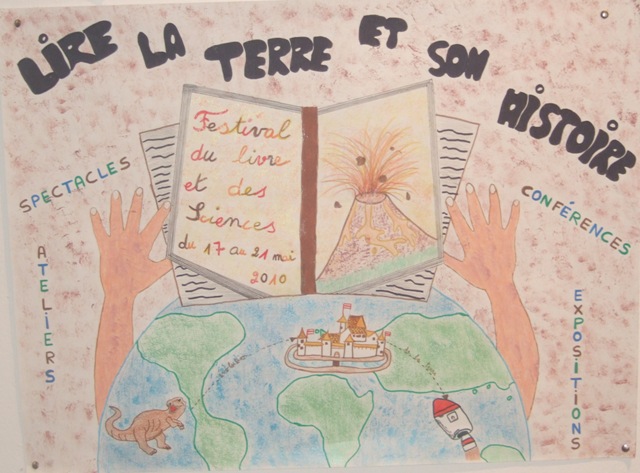 LIRE LA TERRE ET SON HISTOIRE
Festival
du livre
et des
Sciences
du 17 au 21 mai
2010
SPECTACLES
CONFÉRENCES
ATELIERS
EXPOSITIONS